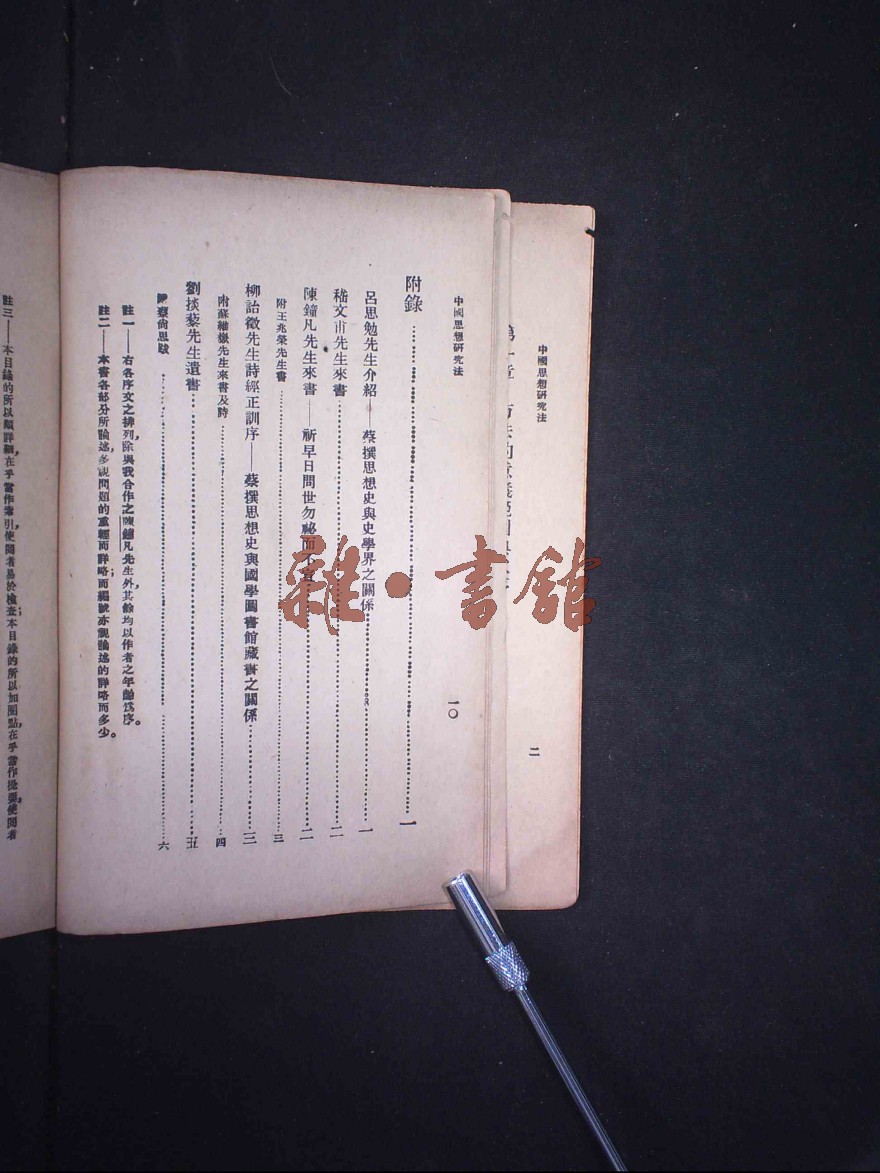 中國思想研究法
二
中國思想研究法
一〇
附錄……一
呂思勉先生介紹——蔡撰思想史與史學界之關係……一
嵇文甫先生來書……二
陳鐘凡先生來書——祈早日問世勿祕而不……二
附王兆榮先生書……三
柳詒徵先生詩經正訓序——蔡撰思想史與國學圖書館藏書之關係……三
附蘇繼廎先生來書及詩……四
劉掞藜先生遺書……五
蔡尚思跋……六
註一——右各序文之排列,除與我合作之陳鐘凡先生外,其餘均以作者之年齡爲序。
註二——本書各部分所論述,多視問題的重輕而詳略;而編號亦視論述的詳略而多少。
註三——本目錄的所以頗詳細,在乎當作索引,使閱者易於檢查;本目錄的所以加圈點,在乎當作提要,使閱者
雜·書館